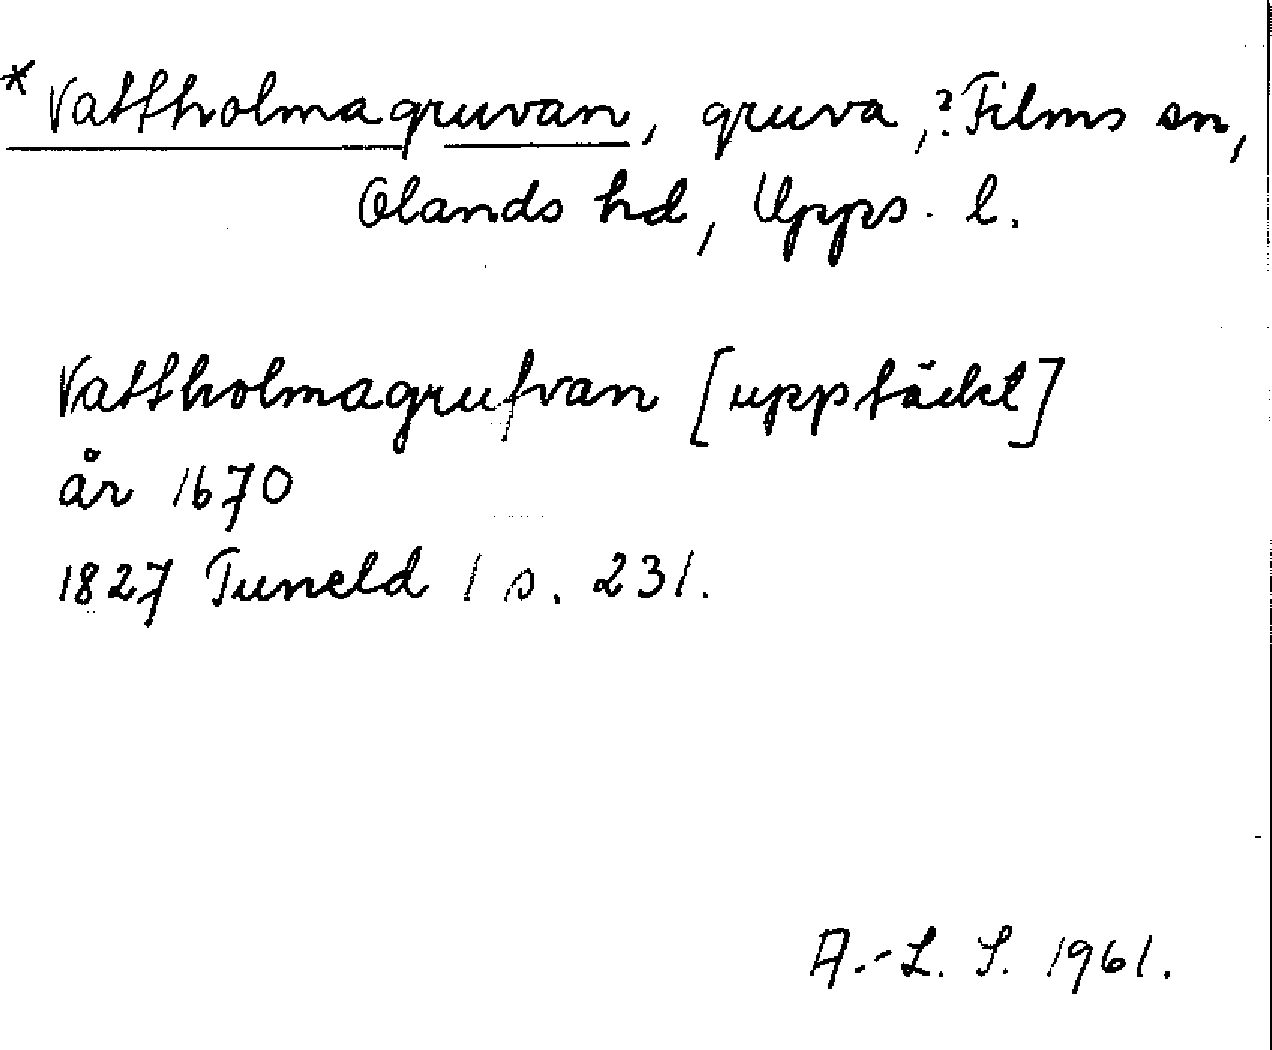 * Vattholmagruvan, gruva, ? Films sn,
Olands hd, Upps. l.
Vattholmagrufvan [upptäckt]
år 1670
1827 Tuneld 1 s. 231.
A.-L. S. 1961.